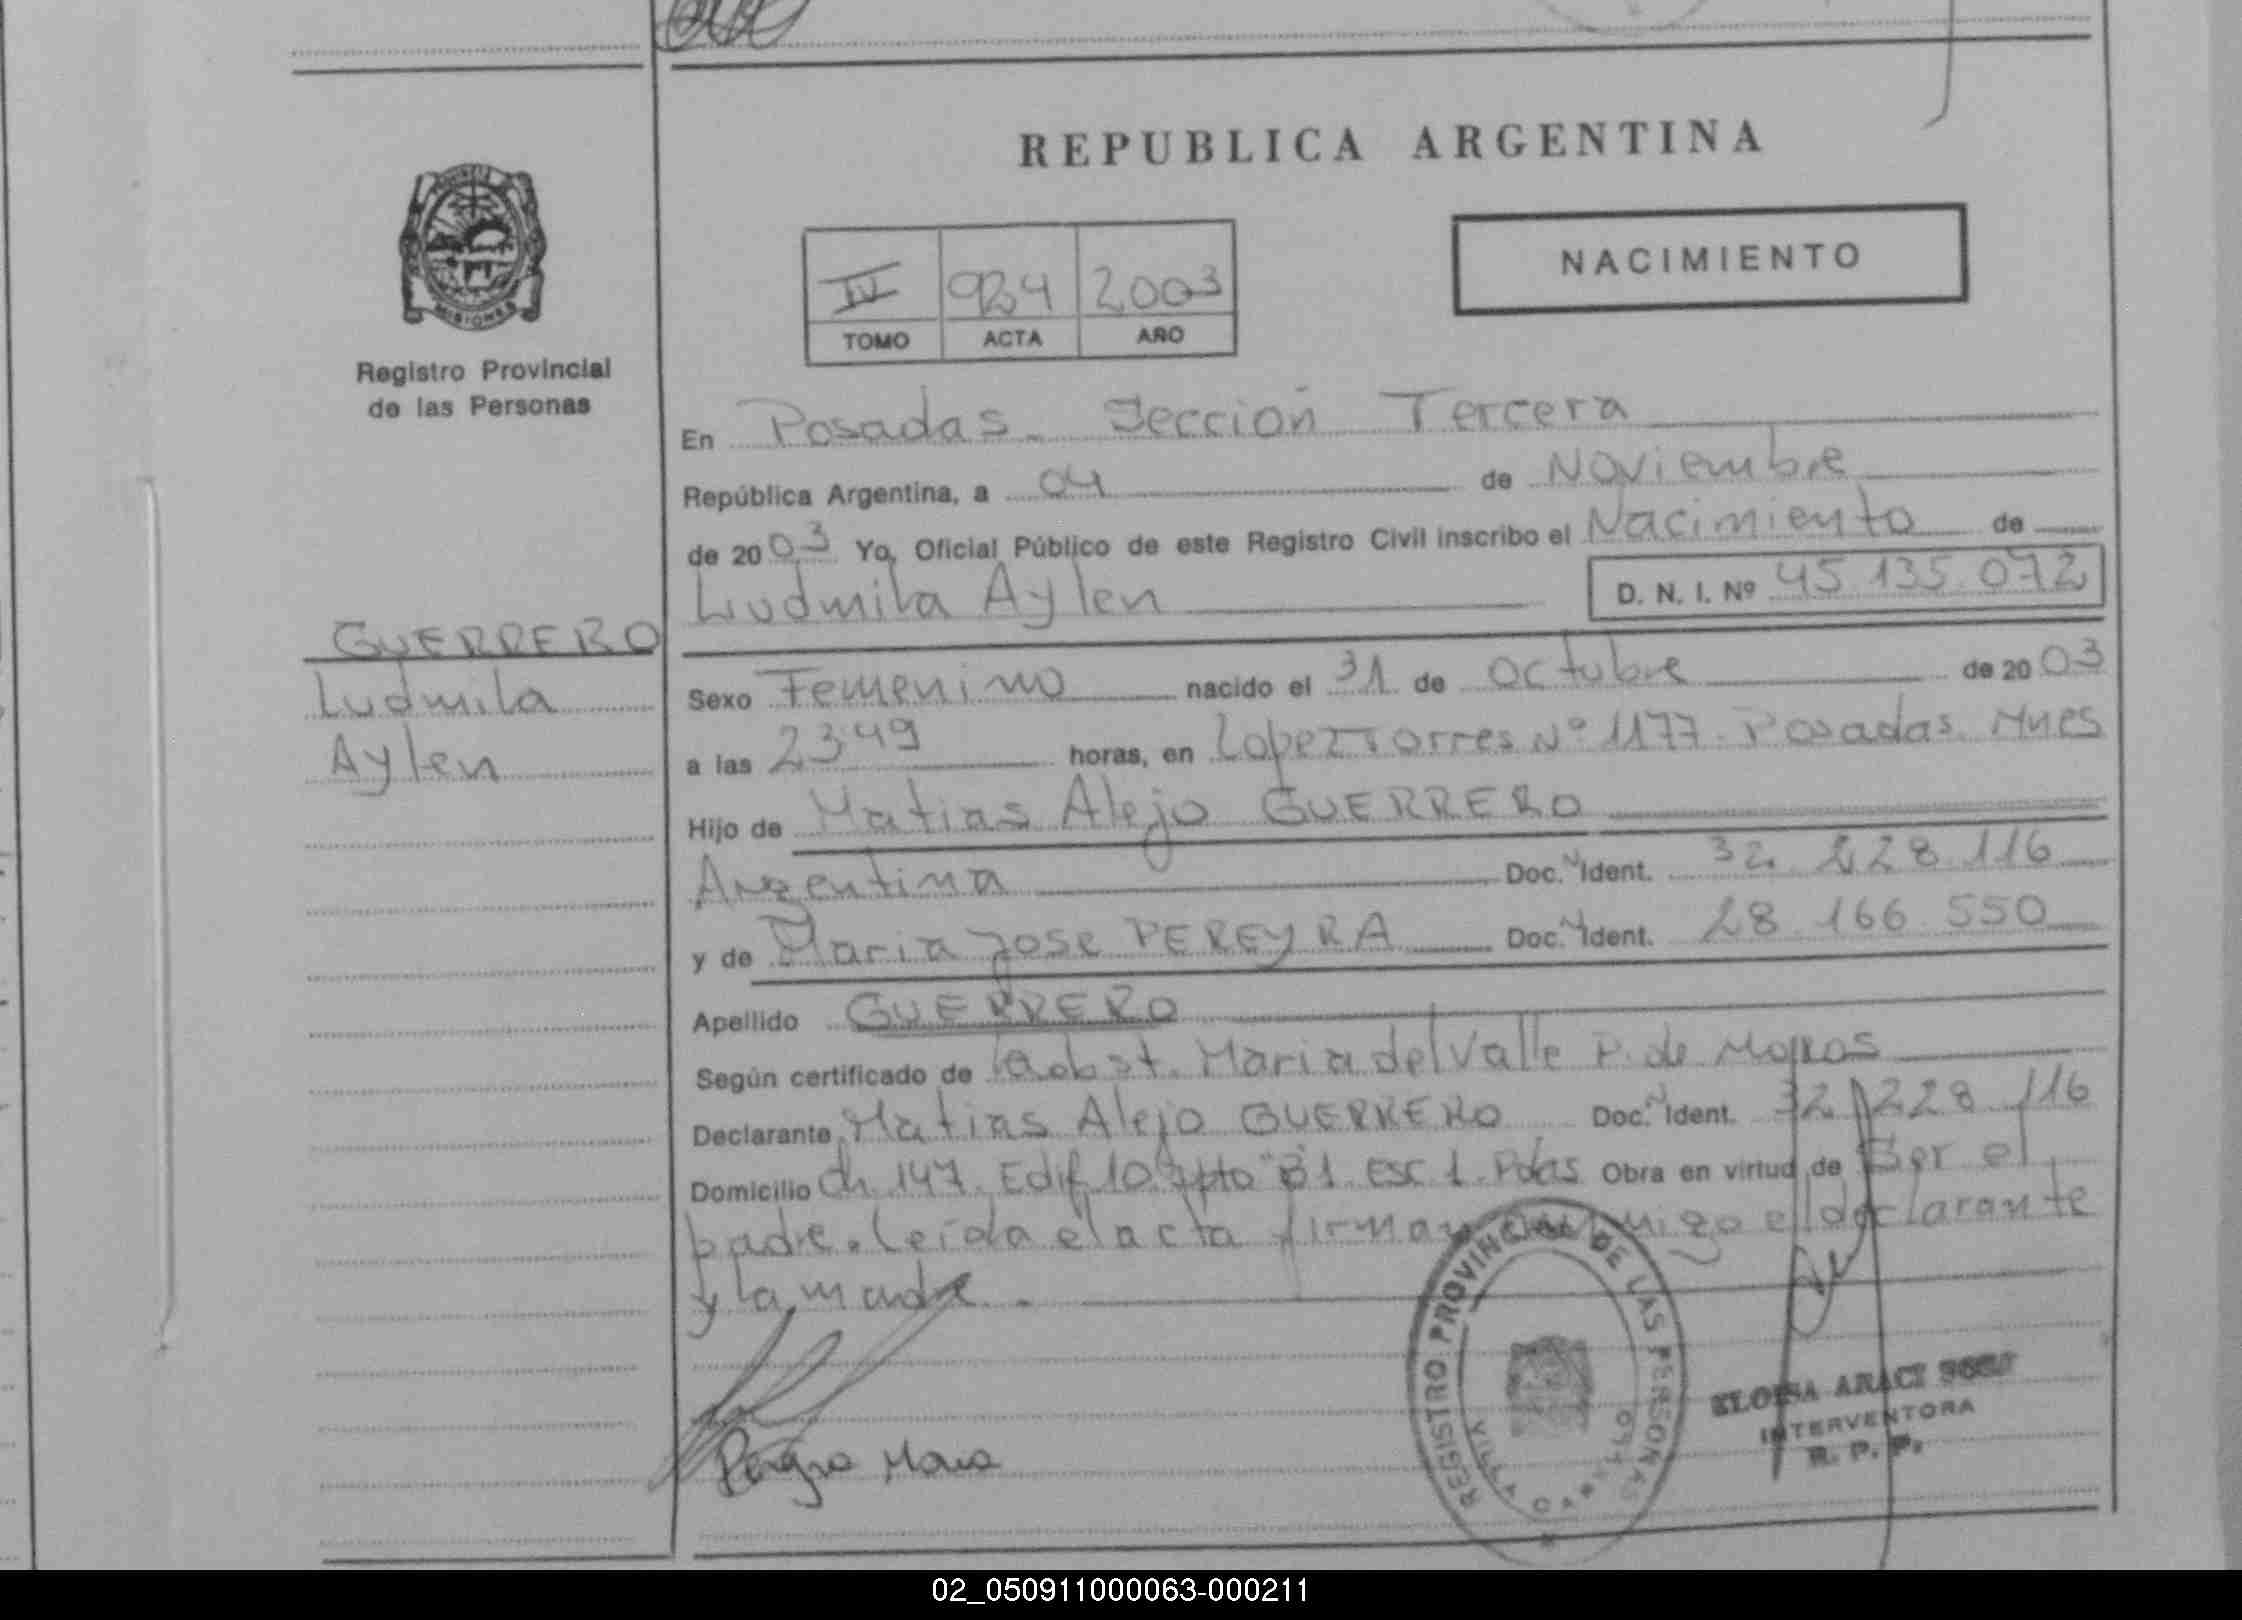 REPUBLICA ARGENTINA
PROVINCIA DE
MISIONES
Registro Provincial
de las Personas
IV 924 2003
TOMO ACTA AÑO
NACIMIENTO
En Posadas - Sección Tercera
República Argentina, a 04 de Noviembre
de 2003 Yo, Oficial Público de este Registro Civil inscribo el Nacimiento de
Ludmila Aylen D. N. I. Nº 45.135.072
GUERRERO
Ludmila
Aylen
Sexo Femenino nacido el 31 de octubre de 2003
a las 23:49 horas, en Lopez Torres Nº 1177. Posadas. Mnes
Hijo de Matias Alejo GUERRERO
Argentina Doc. Ident. 32.228.116
y de Maria Jose PEREYRA Doc. Ident. 28.166.550
Apellido GUERRERO
Según certificado de la obst. Maria del Valle P. de
Declarante Matias Alejo GUERRERO Doc. Ident. 32.228.116
Domicilio Ch. 147. Edif 10. Dpto "B"1 esc 1. Pdas Obra en virtud de Ser el
padre. Leída el acta firman conmigo el declarante
y la madre.
REGISTRO PROVINCIAL DE LAS PERSONAS
VILLA CABELLO
ELOISA ARACI
INTERVENTORA
R. P. P.
Pereyra Maria
02_050911000063-000211